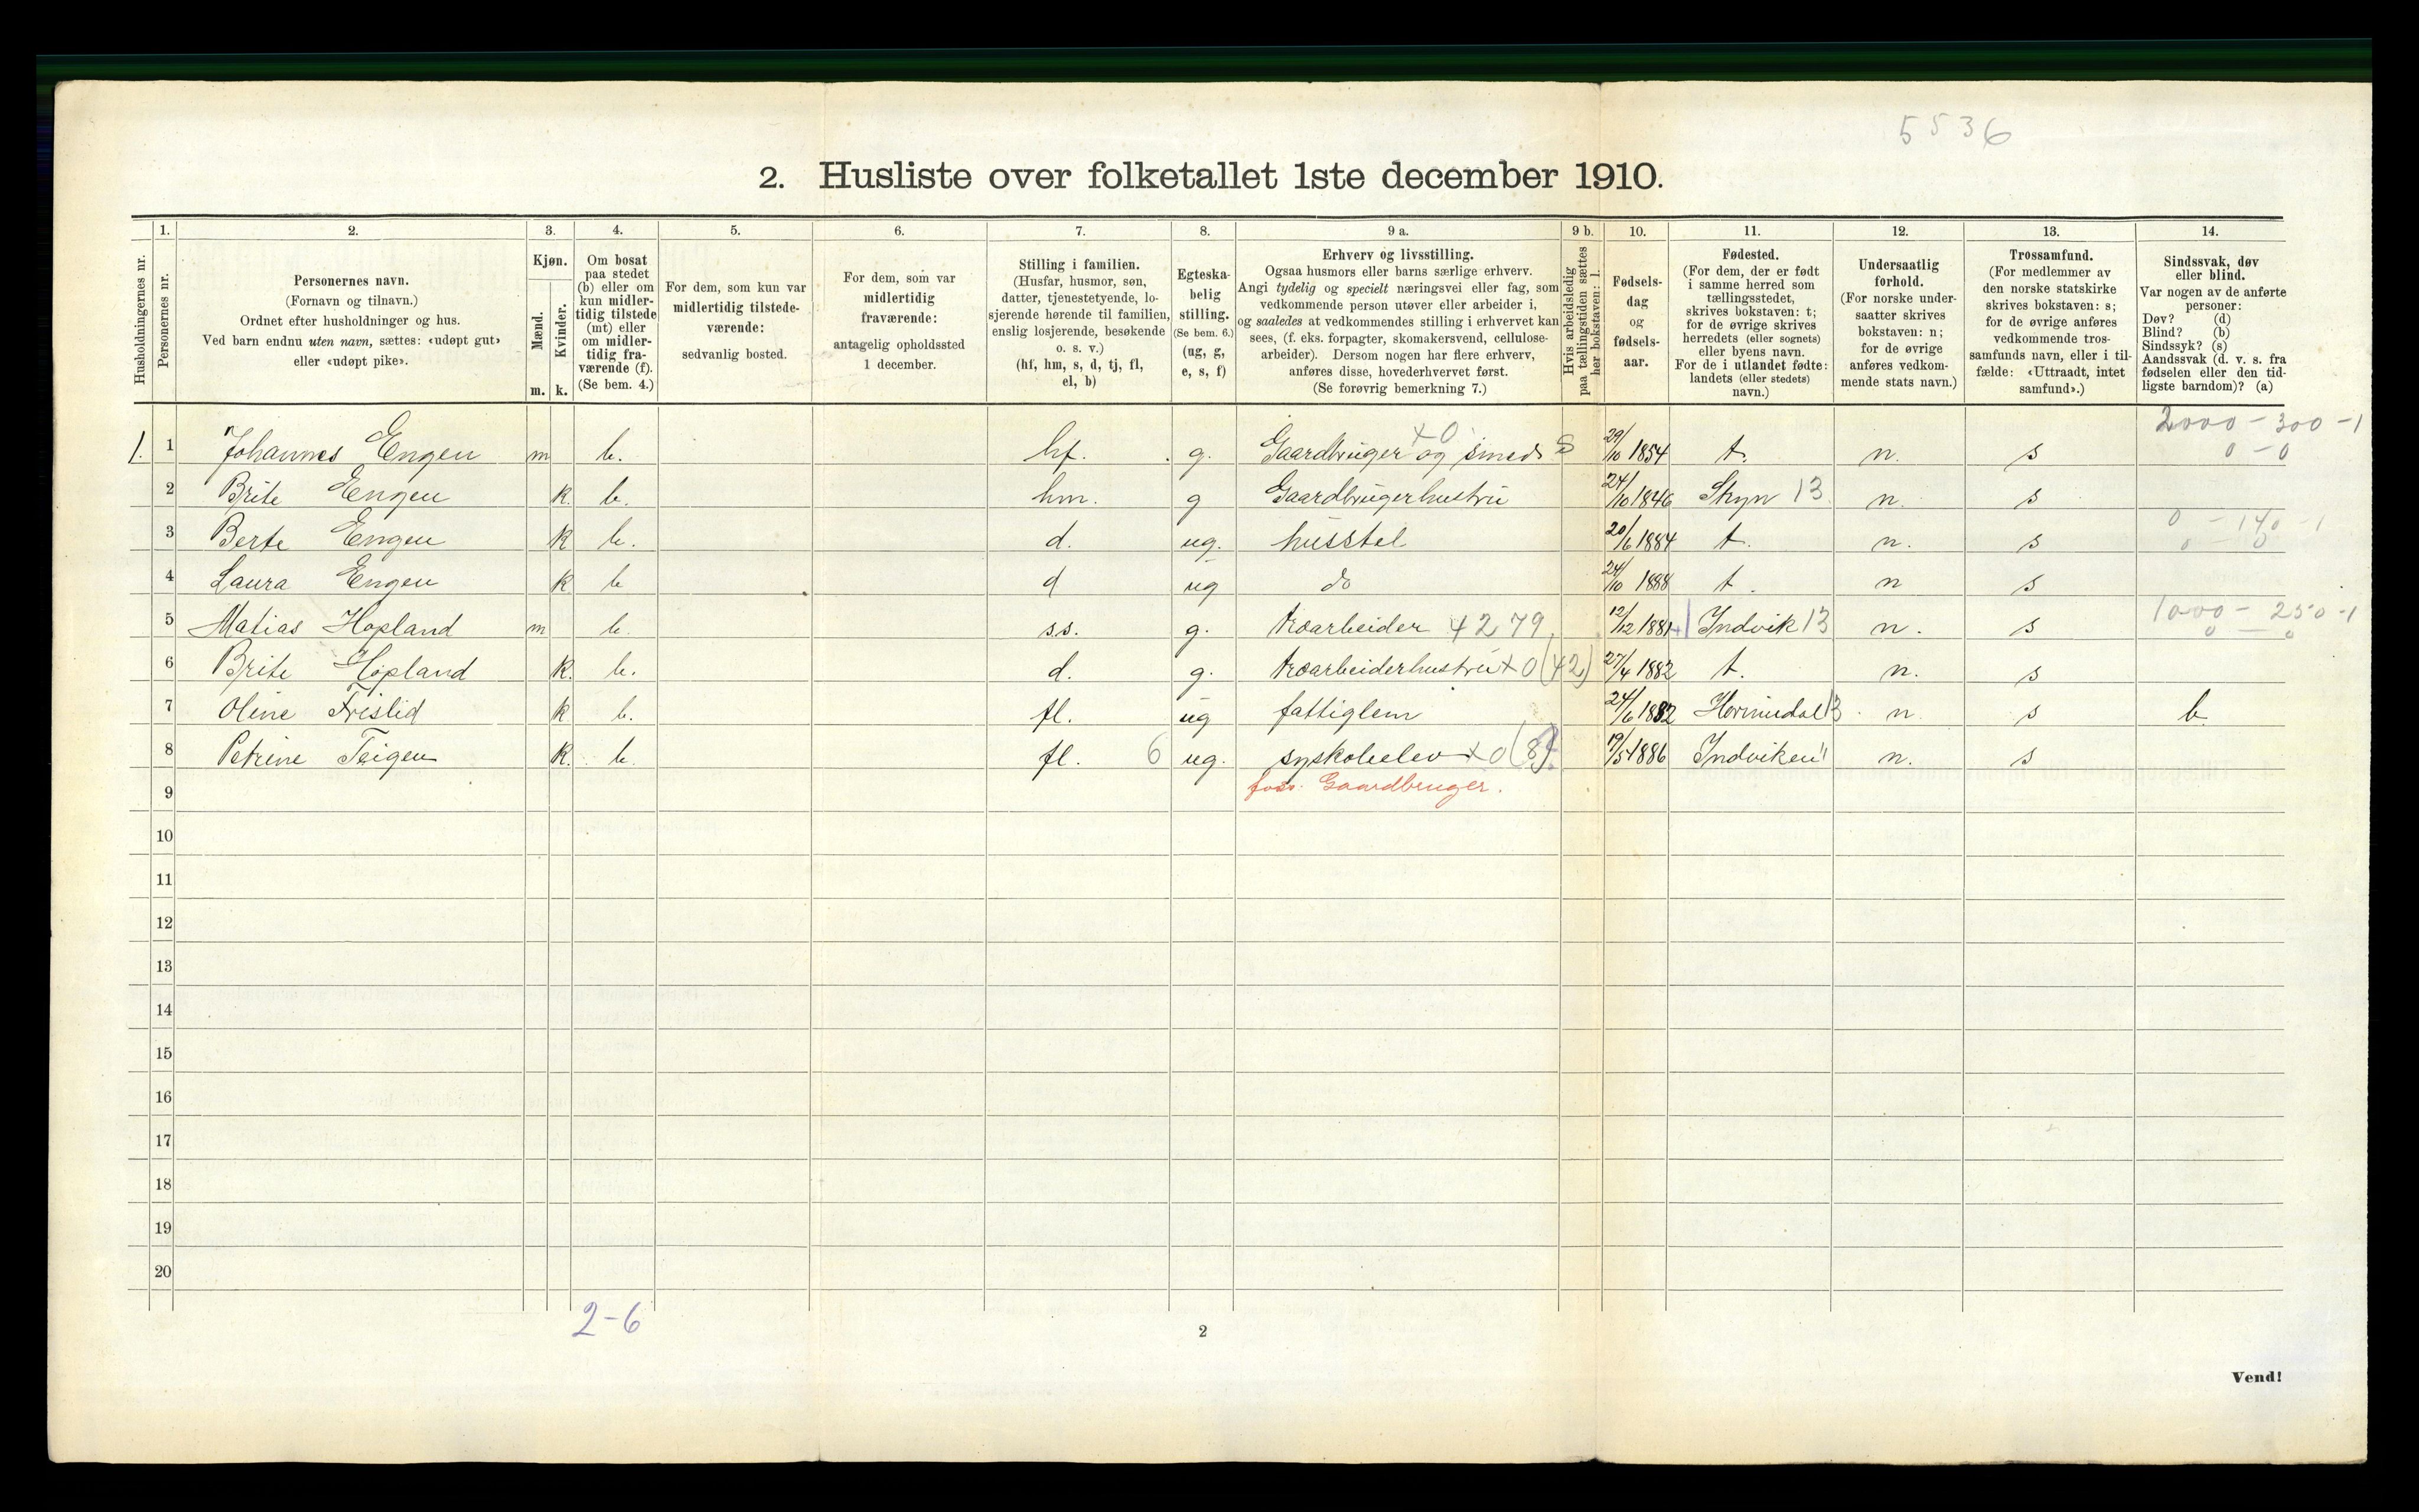 5536
2. Husliste over folketallet 1ste december 1910.
Husholdningernes nr.
1.
Personernes nr.
2.
Personernes navn.
(Fornavn og tilnavn.)
Ordnet efter husholdninger og hus.
Ved barn endnu uten navn, sættes: «udøpt gut»
eller «udøpt pike».
3.
Kjøn.
Mænd.
Kvinder.
m. k.
4.
Om bosat
paa stedet
(b) eller om
kun midler-
tidig tilstede
(mt) eller
om midler-
tidig fra-
værende (f).
(Se bem. 4.)
5.
For dem, som kun var
midlertidig tilstede-
værende:
sedvanlig bosted.
6.
For dem, som var
midlertidig
fraværende:
antagelig opholdssted
1 december.
7.
Stilling i familien.
(Husfar, husmor, søn,
datter, tjenestetyende, lo-
sjerende hørende til familien,
enslig losjerende, besøkende
o. s. v.)
(hf, hm, s, d, tj, fl,
el, b)
8.
Egteska-
belig
stilling.
(Se bem. 6.)
(ug, g,
e, s, f)
9 a.
Erhverv og livsstilling.
Ogsaa husmors eller barns særlige erhverv.
Angi tydelig og specielt næringsvei eller fag, som
vedkommende person utøver eller arbeider i,
og saaledes at vedkommendes stilling i erhvervet kan
sees, (f. eks. forpagter, skomakersvend, cellulose-
arbeider). Dersom nogen har flere erhverv,
anføres disse, hovederhvervet først.
(Se forøvrig bemerkning 7.)
9 b.
Hvis arbeidsledig
paa tællingstiden sættes
her bokstaven: l.
10.
Fødsels-
dag
og
fødsels-
aar.
11.
Fødested.
(For dem, der er født
i samme herred som
tællingsstedet,
skrives bokstaven: t;
for de øvrige skrives
herredets (eller sognets)
eller byens navn.
For de i utlandet fødte:
landets (eller stedets)
navn.)
12.
Undersaatlig
forhold.
(For norske under-
saatter skrives
bokstaven: n;
for de øvrige
anføres vedkom-
mende stats navn.)
13.
Trossamfund.
(For medlemmer av
den norske statskirke
skrives bokstaven: s;
for de øvrige anføres
vedkommende tros-
samfunds navn, eller i til-
fælde: «Uttraadt, intet
samfund».)
14.
Sindssvak, døv
eller blind.
Var nogen av de anførte
personer:
Døv? (d)
Blind? (b)
Sindssyk? (s)
Aandssvak (d. v. s. fra
fødselen eller den tid-
ligste barndom)? (a)
2000 - 300 - 1
1. 1 Johannes Engen m b. hf. g. Gaardbruger og smed +0 S 29/10 1854 t. n. s 0 - 0
2 Brite Engen k. b. hm. g Gaardbrugerhustru 24/10 1846 Stryn 13 n. s
0 - 140 - 1
3 Berte Engen k b. d. ug. husstel 20/6 1884 t. n. s 0 - 0
4 Laura Engen k b d ug do 24/10 1888 t. n s
1000 - 250 - 1
5 Matias Hopland m b. s.s. g. træarbeider +279 12/12 1881 Indvik 13 n. s 0 - 0
6 Brite Hopland k. b. d. g. træarbeiderhustru +0 (42) 27/4 1882 t. n. s
7 Oline Frislid k b. fl. ug fattiglem 24/6 1882 Hornindal 13 n. s b.
8 Petrine Teigen k. b. fl. 6 ug. syskoleelev +0 19/5 1886 Indviken " n. s
9 foss. Gaardbruger.
10
11
12
13
14
15
16
17
18
19
20
2-6
2
Vend!